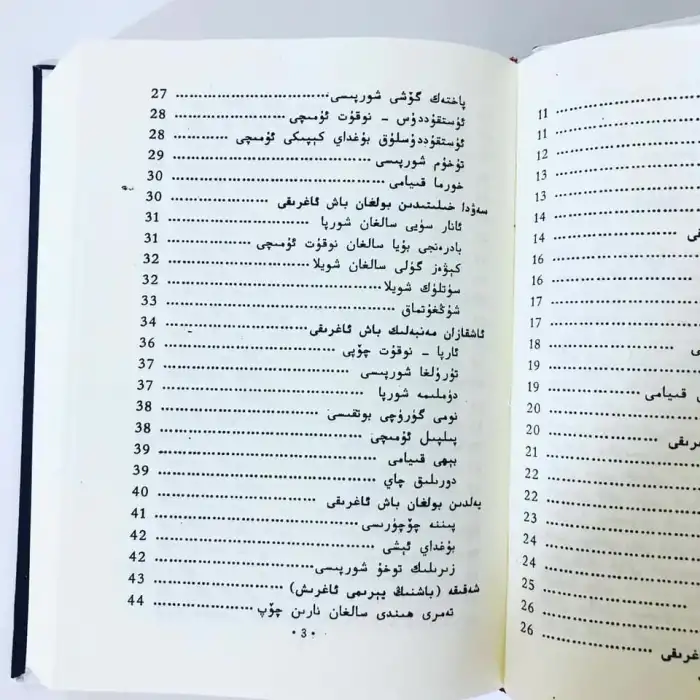 پاختەك گۆشى شورپىسى 27
ئۇستقۇددۇس - نوقۇت ئۇمىچى 28
ئۇستقۇددۇسلۇق بۇغداي كېپىكى ئۇمىچى 28
تۇخۇم شورپىسى 29
خورما قىيامى 30
سەۋدا خىلىتىدىن بولغان باش ئاغرىقى 30
ئانار سۈيى سالغان شورپا 31
بادرەنجى بۇيا سالغان نوقۇت ئۇمىچى 31
كېۋەز گۈلى سالغان شويلا 32
سۈتلۈك شويلا 32
شۇڭغۇتماق 33
ئاشقازان مەنبەلىك باش ئاغرىقى 34
ئارپا - نوقۇت چۆپى 36
تۇرۇلغا شورپىسى 37
دۈملىمە شورپا 37
نومى گۈرۈچى بوتقىسى 38
پىلپىل ئۇمىچى 38
بېھى قىيامى 39
دورىلىق چاي 39
يەلدىن بولغان باش ئاغرىقى 40
پىننە چۆچۈرىسى 41
بۇغداي ئېشى 42
زىرىلىك توخۇ شورپىسى 42
شەقىقە (باشنىڭ يېرىمى ئاغرىش) 43
تەمرى ھىندى سالغان نارىن چۆپ 44
· 3 ·
11
11
12
13
13
14
14
16
16
17
17
18
19
قىيامى 19
20
20
21
22
22
23
24
24
25
26
ئاغرىقى 26